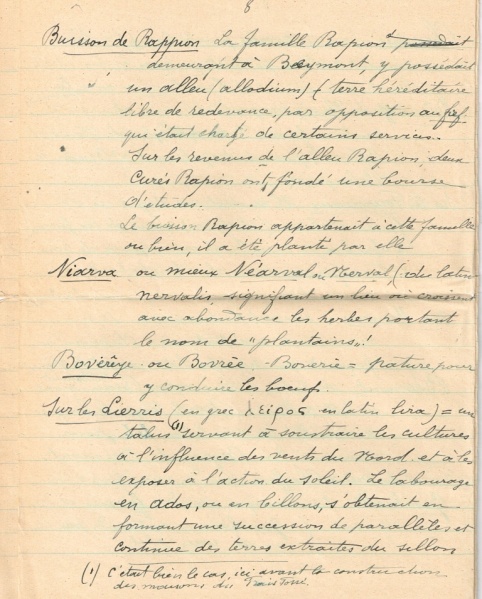 8
Buisson de Rappion La famille Rapion possédait
demeurant à Baymont, y possédait
un alleu (allodium) (terre héréditaire
libre de redevance, par opposition au fief
qui était chargé de certains services.
Sur les revenus de l'alleu Rapion, deux
curés Rapion ont fondé une bourse
d'études.
Le buisson Rapion appartenait à cette famille
ou bien, il a été planté par elle
Niarva ou mieux Néarval ou Nerval, (du latin
nervalis, signifiant un lieu où croissent
avec abondance les herbes portant
le nom de "plantains"!
Bovèrêye ou Bovrée - Boverie = pature pour
y conduire les boeufs.
Sur les Lierris (en grec λειρος en latin lira) = un
talus (1) servant à soustraire les cultures
à l'influence des vents du Nord et à les
exposer à l'action du soleil. Le labourage
en ados, ou en billons, s'obtenait en
formant une succession de parallèles et
continue des terres extraites du sillons
(1) C'était bien le cas, ici avant la construction
des maisons des